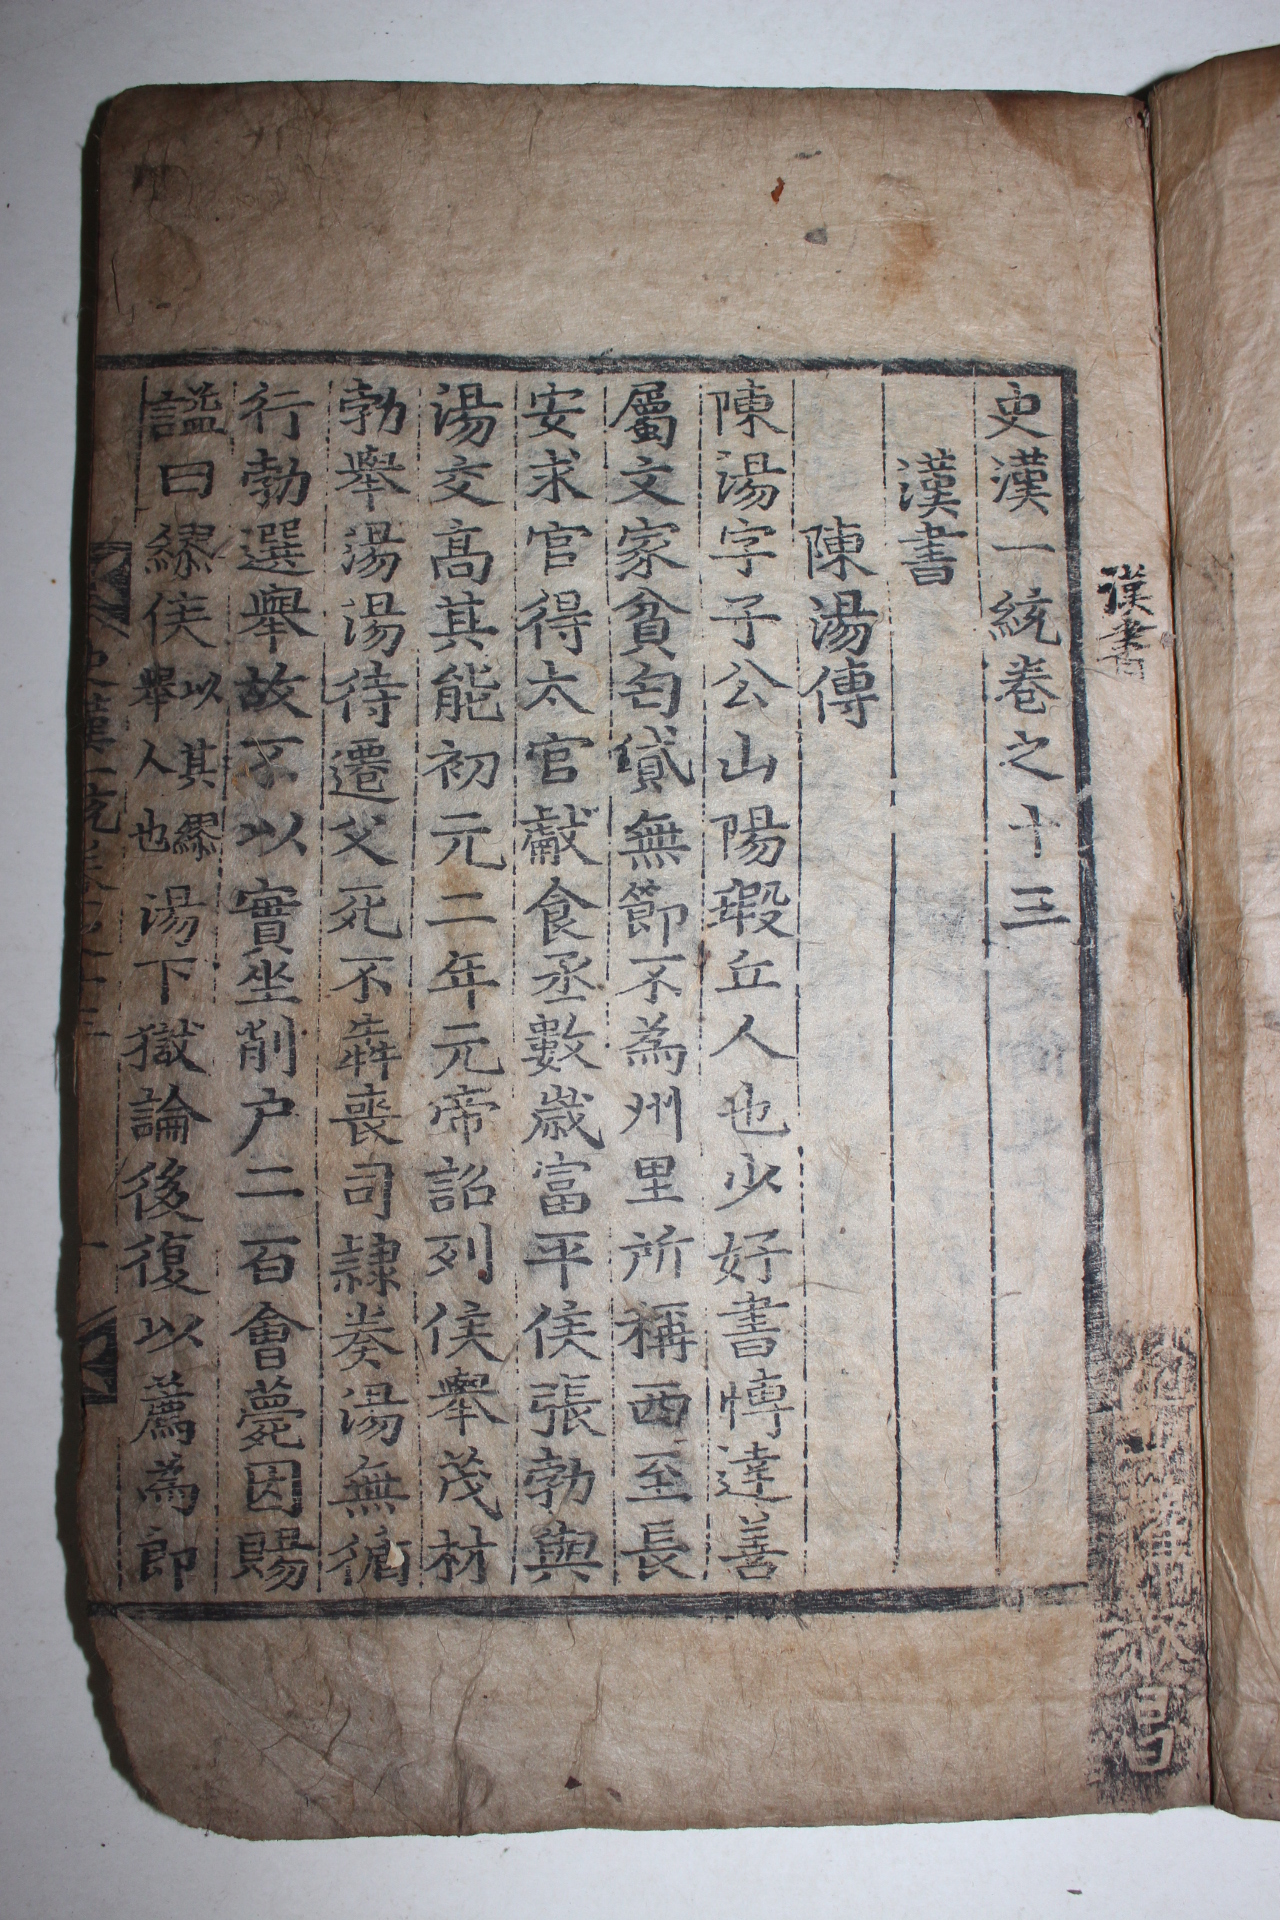 漢書
史漢一統卷之十三
漢書
陳湯傳
陳湯字子公山陽瑕丘人也少好書博達善
屬文家貧匄貣無節不為州里所稱西至長
安求官得太官獻食丞數歲富平侯張勃與
湯交高其能初元二年元帝詔列侯舉茂材
勃舉湯湯待遷父死不犇喪司隷奏湯無循
行勃選舉故不以實坐削户二百會薨因賜
諡曰繆侯以其繆舉人也湯下獄論後復以薦為郎
史漢一統卷之十三 一